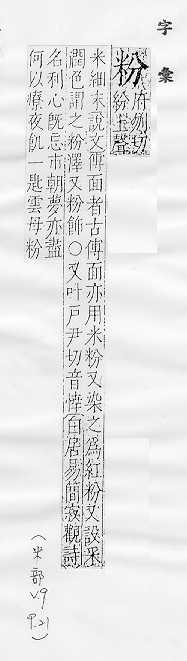 字彙
粉 府刎切
紛上聲
米細末說文傅面者古傅面亦用米粉又染之爲紅粉又設采
潤色謂之粉澤又粉飾〇又叶戸尹切音惲白居易簡寂觀詩
名利心旣忘市朝夢亦盡
何以療夜飢一匙雲母粉
(米部 v.9 p.21)